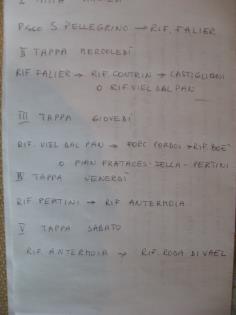 I TAPPA
P.SSO S. PELLEGRINO → RIF. FALIER
II TAPPA MERCOLEDÌ
RIF. FALIER → RIF. CONTRIN → CASTIGLIONI
O RIF. VIEL DAL PAN
III TAPPA GIOVEDÌ
RIF. VIEL DAL PAN → FORC PORDOI → RIF. BOÈ
O PIAN FRATACES - SELLA - PERTINI
IV TAPPA VENERDÌ
RIF. PERTINI → RIF ANTERMOIA
V TAPPA SABATO
RIF. ANTERMOIA → RIF. RODA DI VAEL